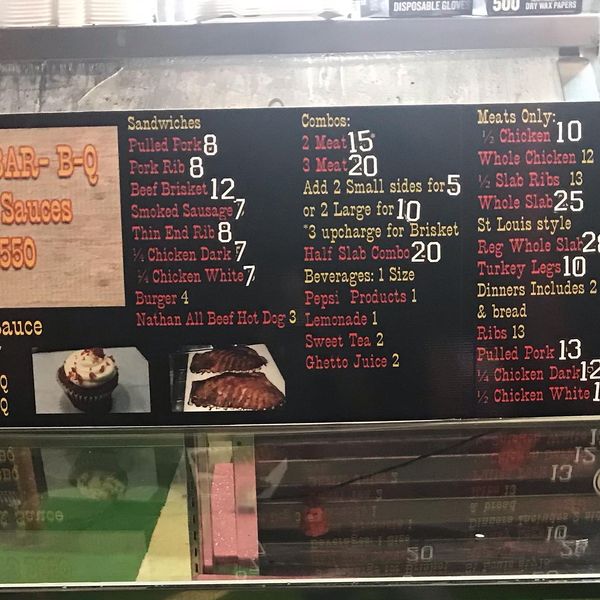 DISPOSABLE GLOVES
500 DRY WAX PAPERS
BAR- B-Q
Sauces
550
Sauce
Q
Q
Sandwiches
Pulled Pork 8
Pork Rib 8
Beef Brisket 12
Smoked Sausage 7
Thin End Rib 8
¼ Chicken Dark 7
¼ Chicken White 7
Burger 4
Nathan All Beef Hot Dog 3
Combos:
2 Meat 15
3 Meat 20
Add 2 Small sides for 5
or 2 Large for 10
*3 upcharge for Brisket
Half Slab Combo 20
Beverages: 1 Size
Pepsi Products 1
Lemonade 1
Sweet Tea 2
Ghetto Juice 2
Meats Only:
½ Chicken 10
Whole Chicken 12
½ Slab Ribs 13
Whole Slab 25
St Louis style
Reg Whole Slab
Turkey Legs 10
Dinners Includes 2
& bread
Ribs 13
Pulled Pork 13
¼ Chicken Dark 12
½ Chicken White